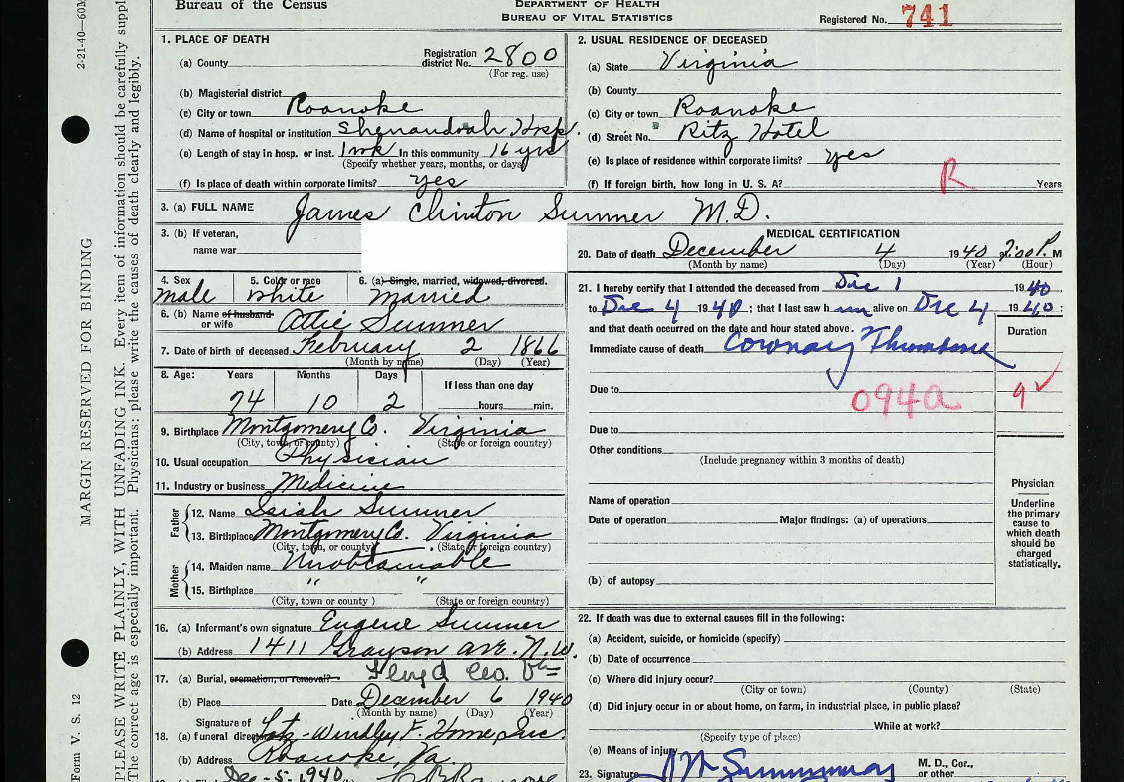 Bureau of the Census
DEPARTMENT OF HEALTH
BUREAU OF VITAL STATISTICS
Registered No. 741
2-21-40—60M
MARGIN RESERVED FOR BINDING
Form V. S. 12
PLEASE WRITE PLAINLY, WITH UNFADING INK. Every item of information should be carefully suppl
The correct age is especially important. Physicians: please write the causes of death clearly and legibly.
1. PLACE OF DEATH
(a) County
Registration district No. 2800
(For reg. use)
(b) Magisterial district
(c) City or town Roanoke
(d) Name of hospital or institution Shenandoah Hosp.
(e) Length of stay in hosp. or inst. 1 wk In this community 16 yrs
(Specify whether years, months, or days)
(f) Is place of death within corporate limits? yes
2. USUAL RESIDENCE OF DECEASED
(a) State Virginia
(b) County
(c) City or town Roanoke
(d) Street No. Ritz Hotel
(e) Is place of residence within corporate limits? yes
R
(f) If foreign birth, how long in U. S. A? Years
3. (a) FULL NAME James Clinton Sumner M.D.
3. (b) If veteran,
name war
4. Sex Male
5. Color or race White
6. (a) Single, married, widowed, divorced. Married
6. (b) Name of husband or wife Attie Sumner
7. Date of birth of deceased February 2 1866
(Month by name) (Day) (Year)
8. Age: Years Months Days If less than one day
74 10 2 hours min.
9. Birthplace Montgomery Co. Virginia
(City, town, or county) (State or foreign country)
10. Usual occupation Physician
11. Industry or business Medicine
Father
12. Name Isiah Sumner
13. Birthplace Montgomery Co. Virginia
(City, town, or county) (State or foreign country)
Mother
14. Maiden name Unobtainable
15. Birthplace " "
(City, town or county) (State or foreign country)
16. (a) Informant's own signature Eugene Sumner
(b) Address 1411 Grayson ave. N.W.
17. (a) Burial, cremation, or removal? Floyd Co. Va
(b) Place Date December 6 1940
(Month by name) (Day) (Year)
18. Signature of
(a) funeral director F. Home Inc.
(b) Address Roanoke, Va.
Dec-5-1940
MEDICAL CERTIFICATION
20. Date of death December 4 1940 2:00 P. M
(Month by name) (Day) (Year) (Hour)
21. I hereby certify that I attended the deceased from Dec 1 1940
to Dec 4 1940; that I last saw him alive on Dec 4 1940;
and that death occurred on the date and hour stated above.
Duration
Immediate cause of death Coronary Thrombosis
Due to
094a 9
Due to
Other conditions
(Include pregnancy within 3 months of death)
Name of operation
Date of operation Major findings: (a) of operations
(b) of autopsy
Physician
Underline
the primary
cause to
which death
should be
charged
statistically.
22. If death was due to external causes fill in the following:
(a) Accident, suicide, or homicide (specify)
(b) Date of occurrence
(c) Where did injury occur?
(City or town) (County) (State)
(d) Did injury occur in or about home, on farm, in industrial place, in public place?
While at work?
(Specify type of place)
(e) Means of injury
23. Signature M. D., Cor.,
or other